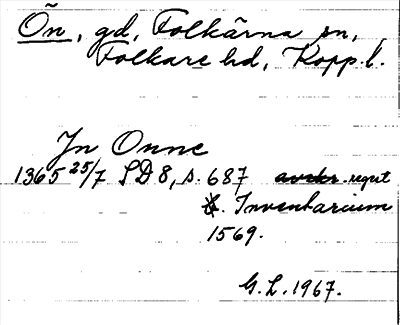 Ön, gd, Folkärna sn,
Folkare hd, Kopp. l.
Jn Onne
1365 25/7 SD 8, s. 687 regist
Inventarium
1569.
G. L. 1967.